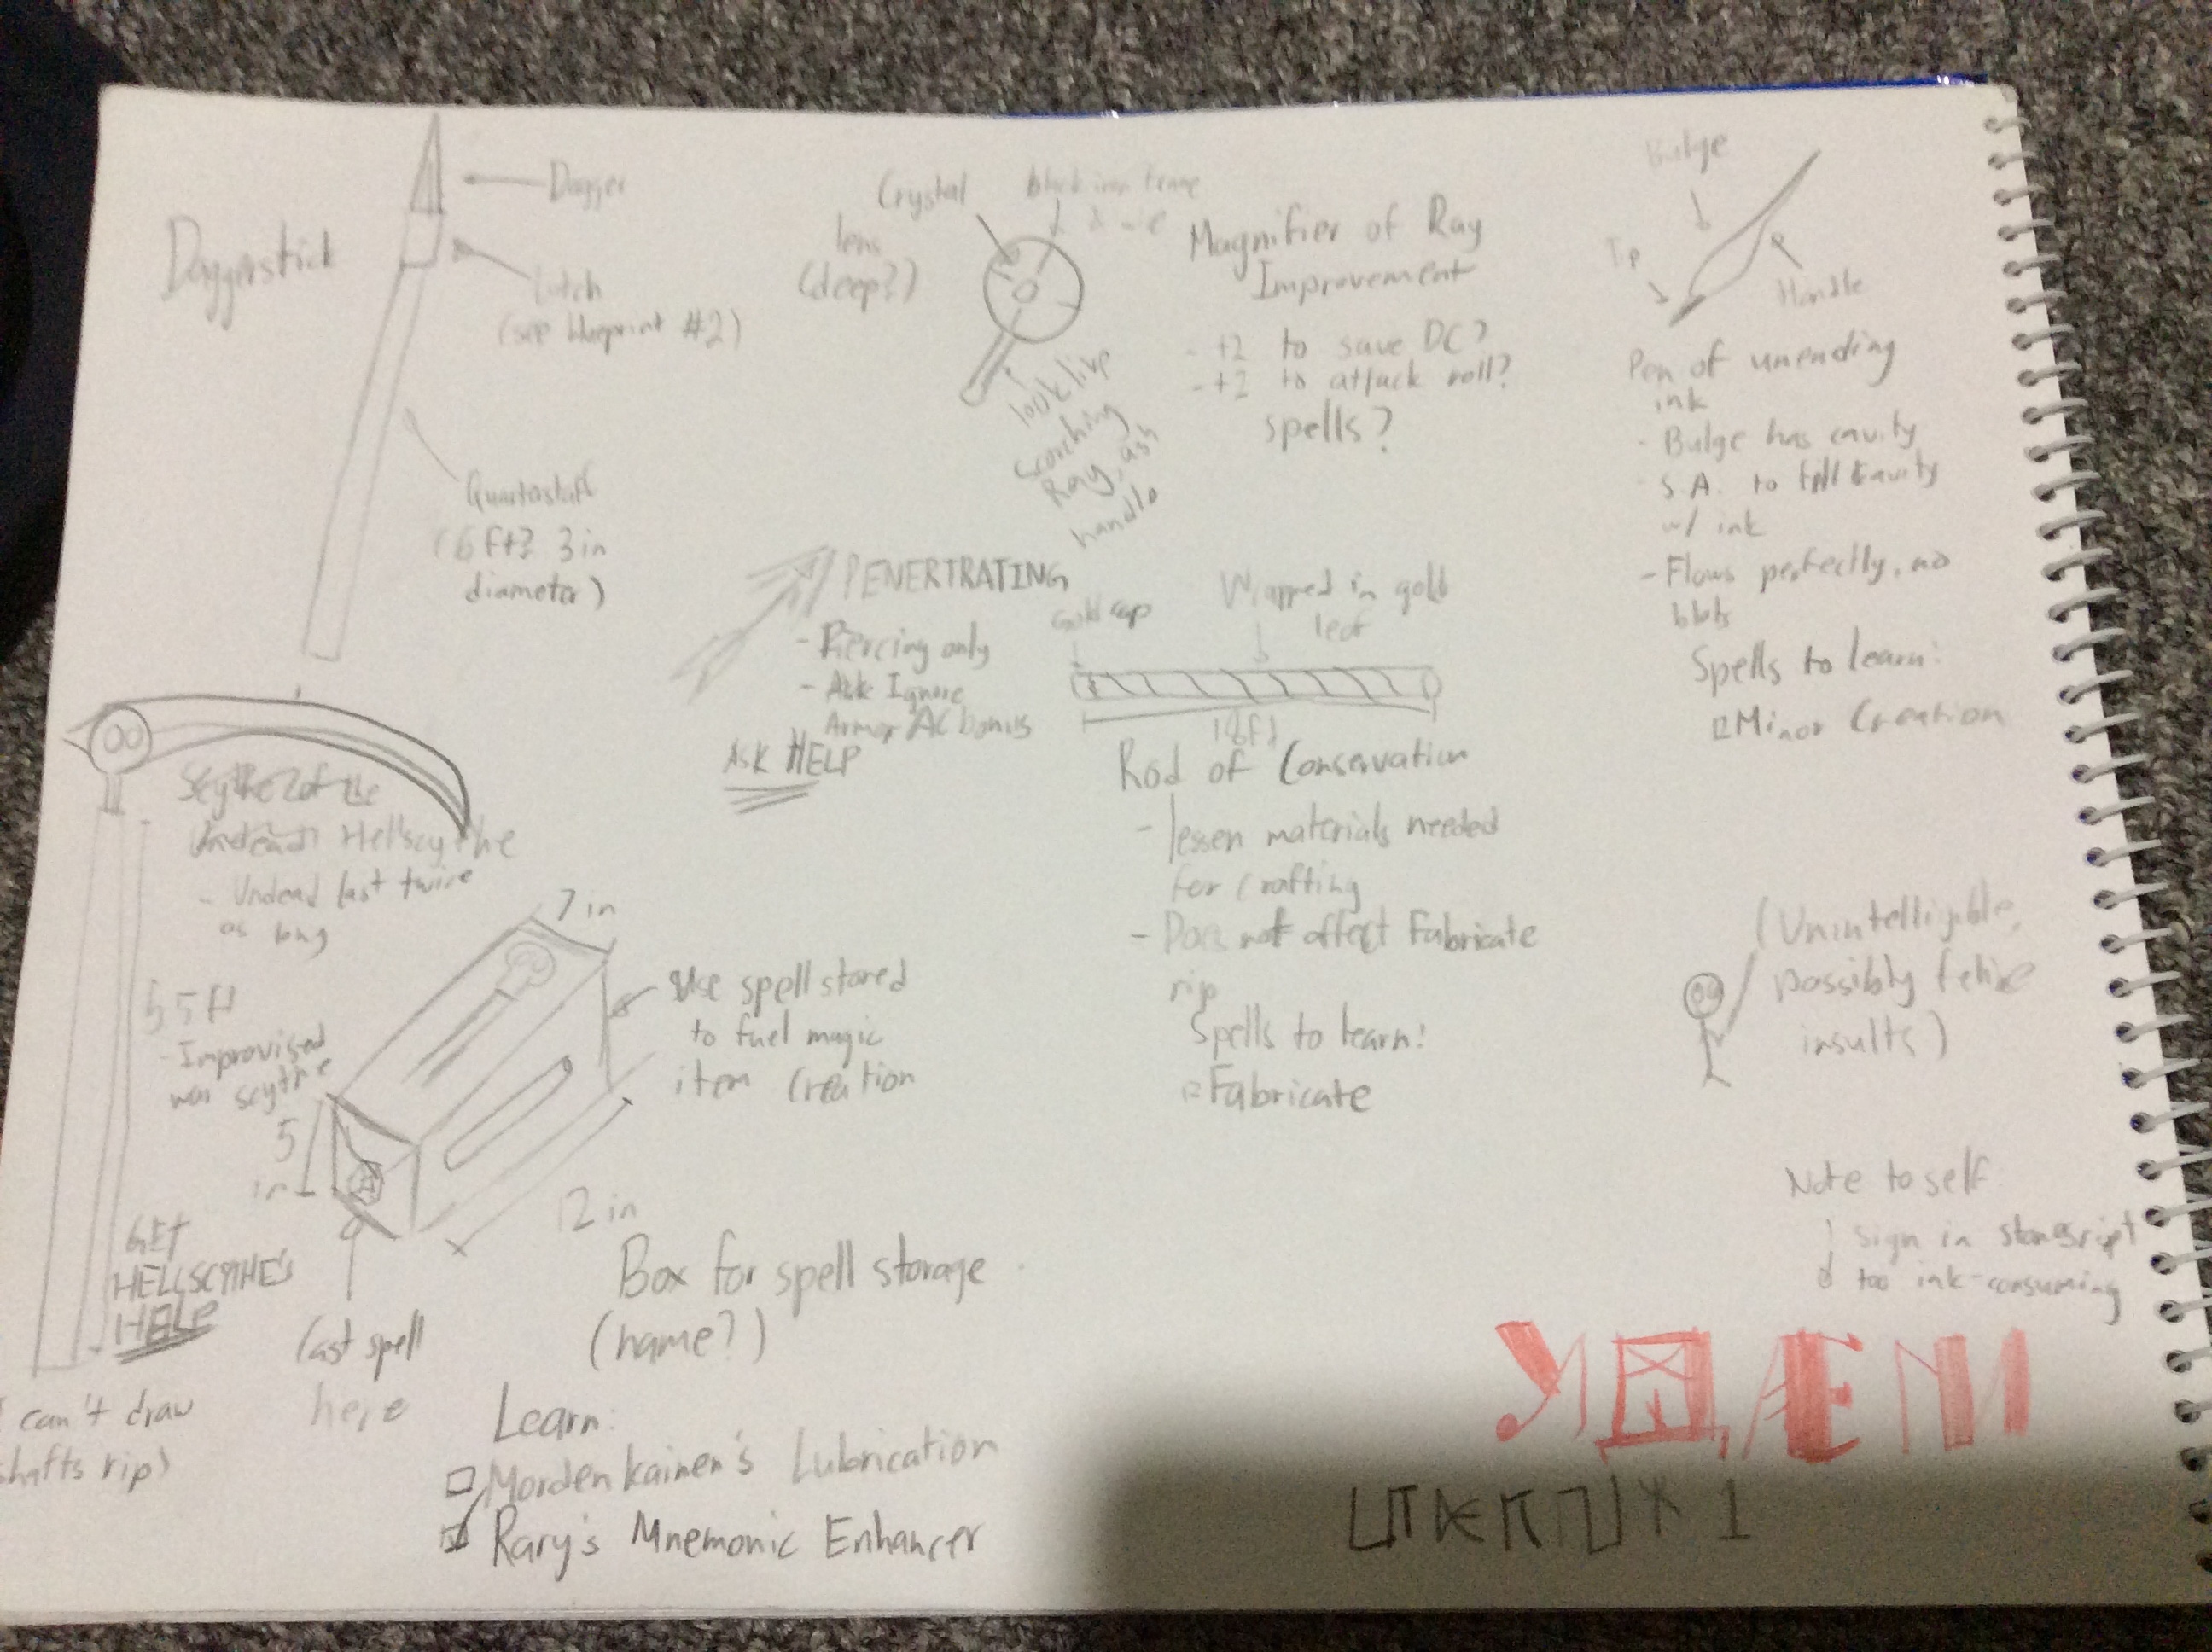 Daggerstick
Dagger
Latch
(see blueprint #2)
Quarterstaff
(6 ft? 3 in
diameter)
Crystal
lens
(deep?)
black iron frame
look like
Scorching
Ray, ash
handle
Magnifier of Ray
Improvement
- +2 to save DC?
- +2 to attack roll?
spells?
Bulge
Tip
Handle
Pen of unending
ink
- Bulge has cavity
- S.A. to fill cavity
w/ ink
- Flows perfectly, no
blots
Spells to learn:
Minor Creation
PENERTRATING
- Piercing only
- Ignore
Armor AC bonus
ASK HELP
Gold cap
Wrapped in gold
leaf
Rod of Conservation
- lessen materials needed
for crafting
- Does not affect Fabricate
rip
Spells to learn:
Fabricate
Scythe of the
Undead Hellscythe
- Undead last twice
as long
5.5 ft
- Improvised
war scythe
GET
HELLSCYTHE'S
HELP
can't draw
shafts rip)
7 in
5
in
12 in
Use spell stored
to fuel magic
item creation
Cast spell
here
Box for spell storage
(name?)
Learn:
Mordenkainen's Lubrication
Rary's Mnemonic Enhancer
(Unintelligible,
possibly feline
insults)
Note to self
Sign in
too ink-consuming